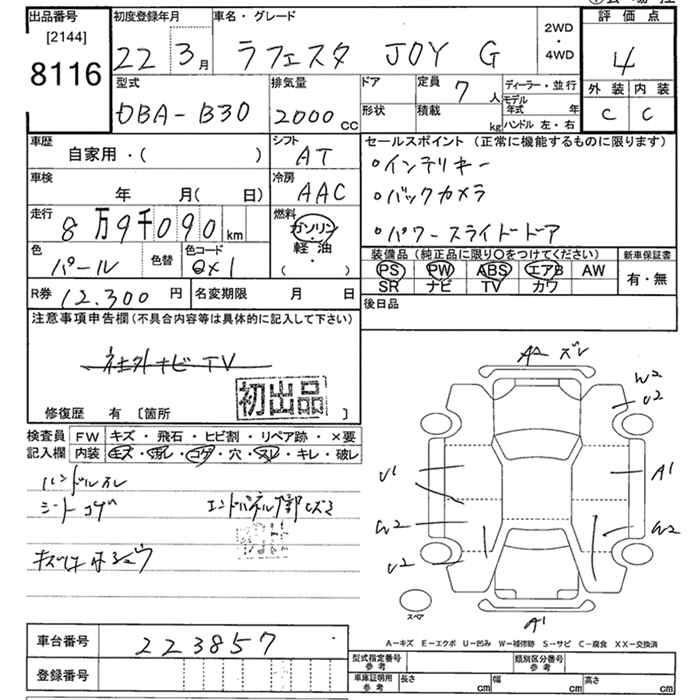 出品番号 初度登録年月 車名・グレード 2WD・4WD 評価点
[2144]
8116 22 3月 ラフェスタ JOY G 4
型式 排気量 ドア 定員 7人 ディーラー・並行 外装 内装
DBA-B30 2000cc 形状 積載 kg モデル年式 年 C C
ハンドル 左・右
車歴 シフト セールスポイント(正常に機能するものに限ります)
自家用・( ) AT ○インテリキー
車検 冷房 ○バックカメラ
年 月( 日) AAC
走行 燃料 ○パワースライドドア
8万9千090km ガソリン・軽・油( )
色 色替 色コード 装備品(純正品に限り○をつけてください) 新車保証書
パール QX1 PS PW ABS エアB AW 有・無
SR ナビ TV カワ
R券 12,300円 名変期限 月 日 後日品
注意事項申告欄(不具合内容等は具体的に記入して下さい)
社外ナビTV
A2 ズレ
初出品
修復歴 有 [箇所 ]
W2
U2
検査員 FW キズ・飛石・ヒビ割・リペア跡・×要
記入欄 内装 キズ・汚レ・コゲ・穴・スレ・キレ・破レ
ハンドルスレ U1 A1
シートコゲ エンドパネル下部ヒズミ
W2 W2
キズ U2
スペア
A1
車台番号 223857
A-キズ E-エクボ U-凹み W-補修跡 S-サビ C-腐食 XX-交換済
登録番号 型式指定番号 参考 類別区分番号 参考
車庫証明用 参考 長さ cm 幅 cm 高さ cm